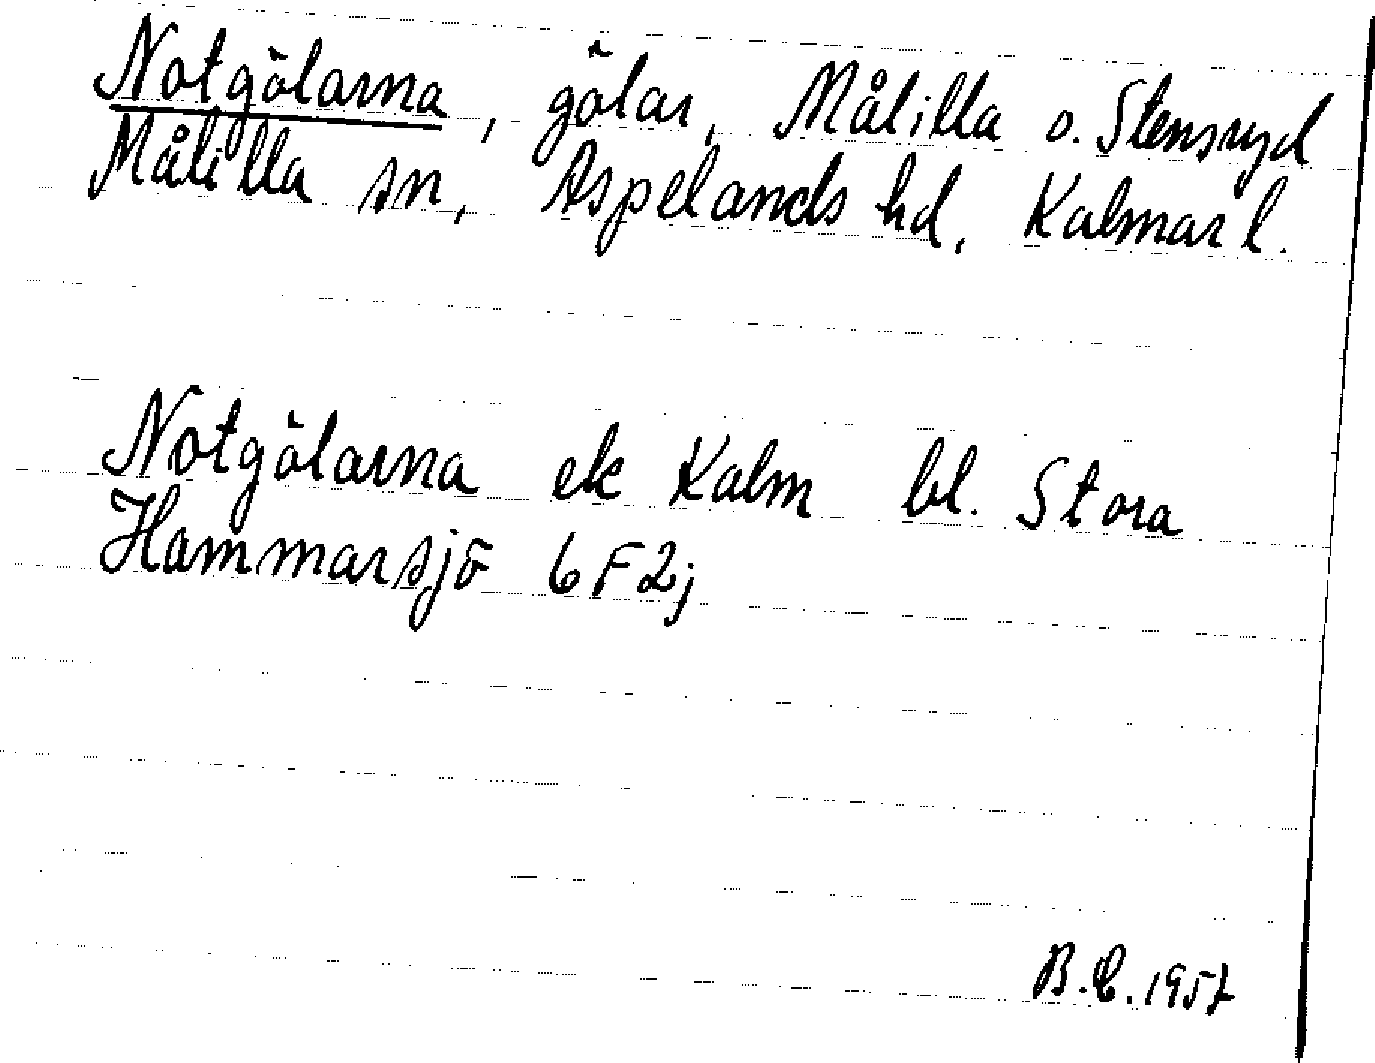 Notgölarna, gölar, Målilla o. Stensryd
Målilla sn, Aspelands hd, Kalmar l.
Notgölarna ek Kalm bl. Stora
Hammarsjö 6F2j
B.C. 1957